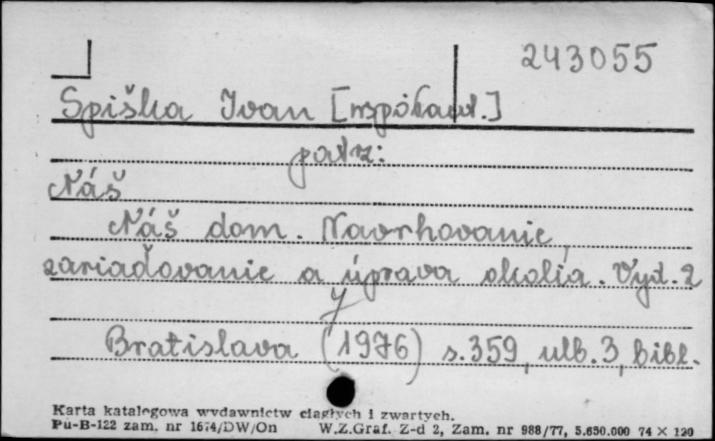 243055
Spiška Ivan [współaut.]
patrz:
Náš
Náš dom. Navrhovanie,
zariaďovanie a úprava okolia. Vyd. 2
Bratislava (1976) s. 359, ulb. 3, bibl.
Karta katalogowa wydawnictw ciągłych i zwartych.
Pu-B-122 zam. nr 1674/DW/On W.Z.Graf. Z-d 2, Zam. nr 988/77, 5.650.000 74 × 120